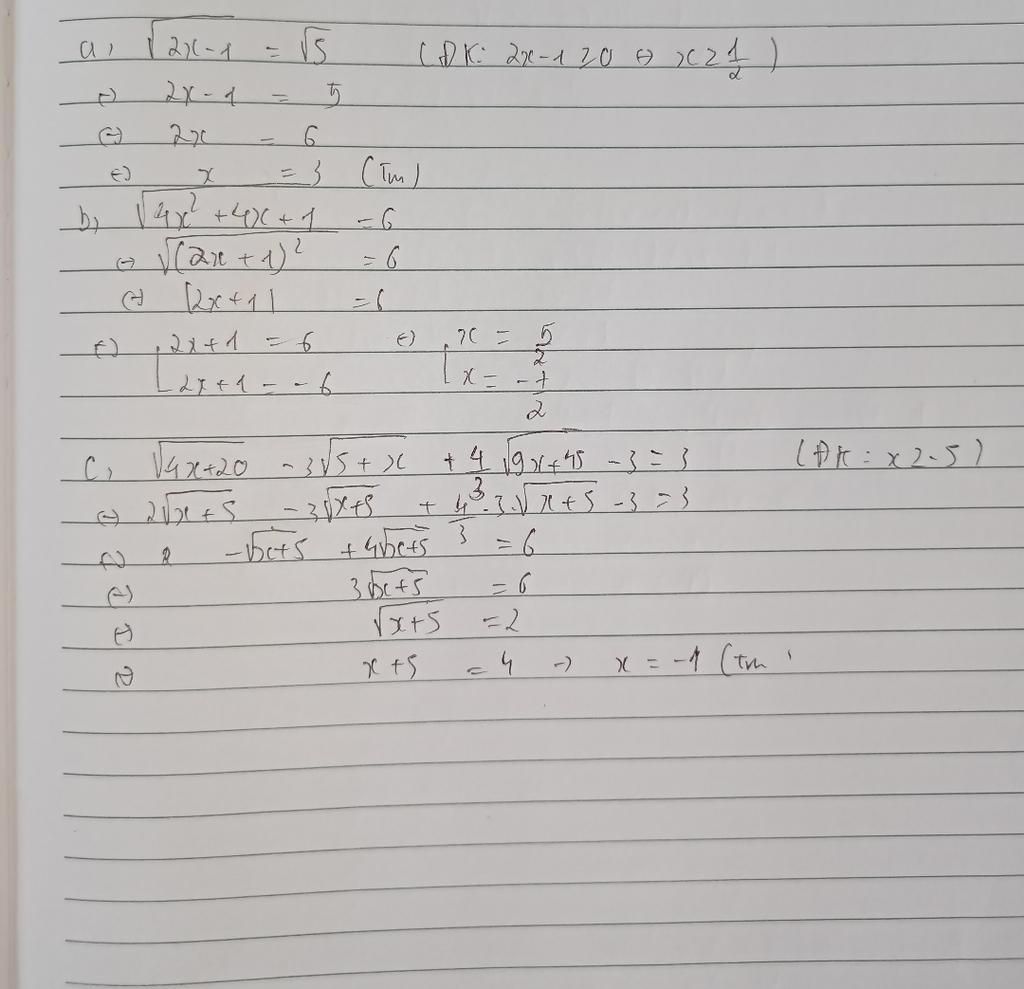 a, √(2x-1) = √5 (ĐK: 2x-1 ≥ 0 ⇔ x ≥ 1/2)
⇔ 2x-1 = 5
⇔ 2x = 6
⇔ x = 3 (Tm)
b, √(4x² + 4x + 1) = 6
⇔ √((2x+1)²) = 6
⇔ |2x+1| = 6
⇔ [2x+1 = 6 ⇔ [x = 5/2
[2x+1 = -6 [x = -7/2
c, √(4x+20) - 3√(5+x) + 4/3 √(9x+45) - 3 = 3 (ĐK: x ≥ -5)
⇔ 2√(x+5) - 3√(x+5) + 4/3 . 3.√(x+5) - 3 = 3
⇔ -√(x+5) + 4√(x+5) = 6
⇔ 3√(x+5) = 6
⇔ √(x+5) = 2
⇔ x+5 = 4 → x = -1 (tm